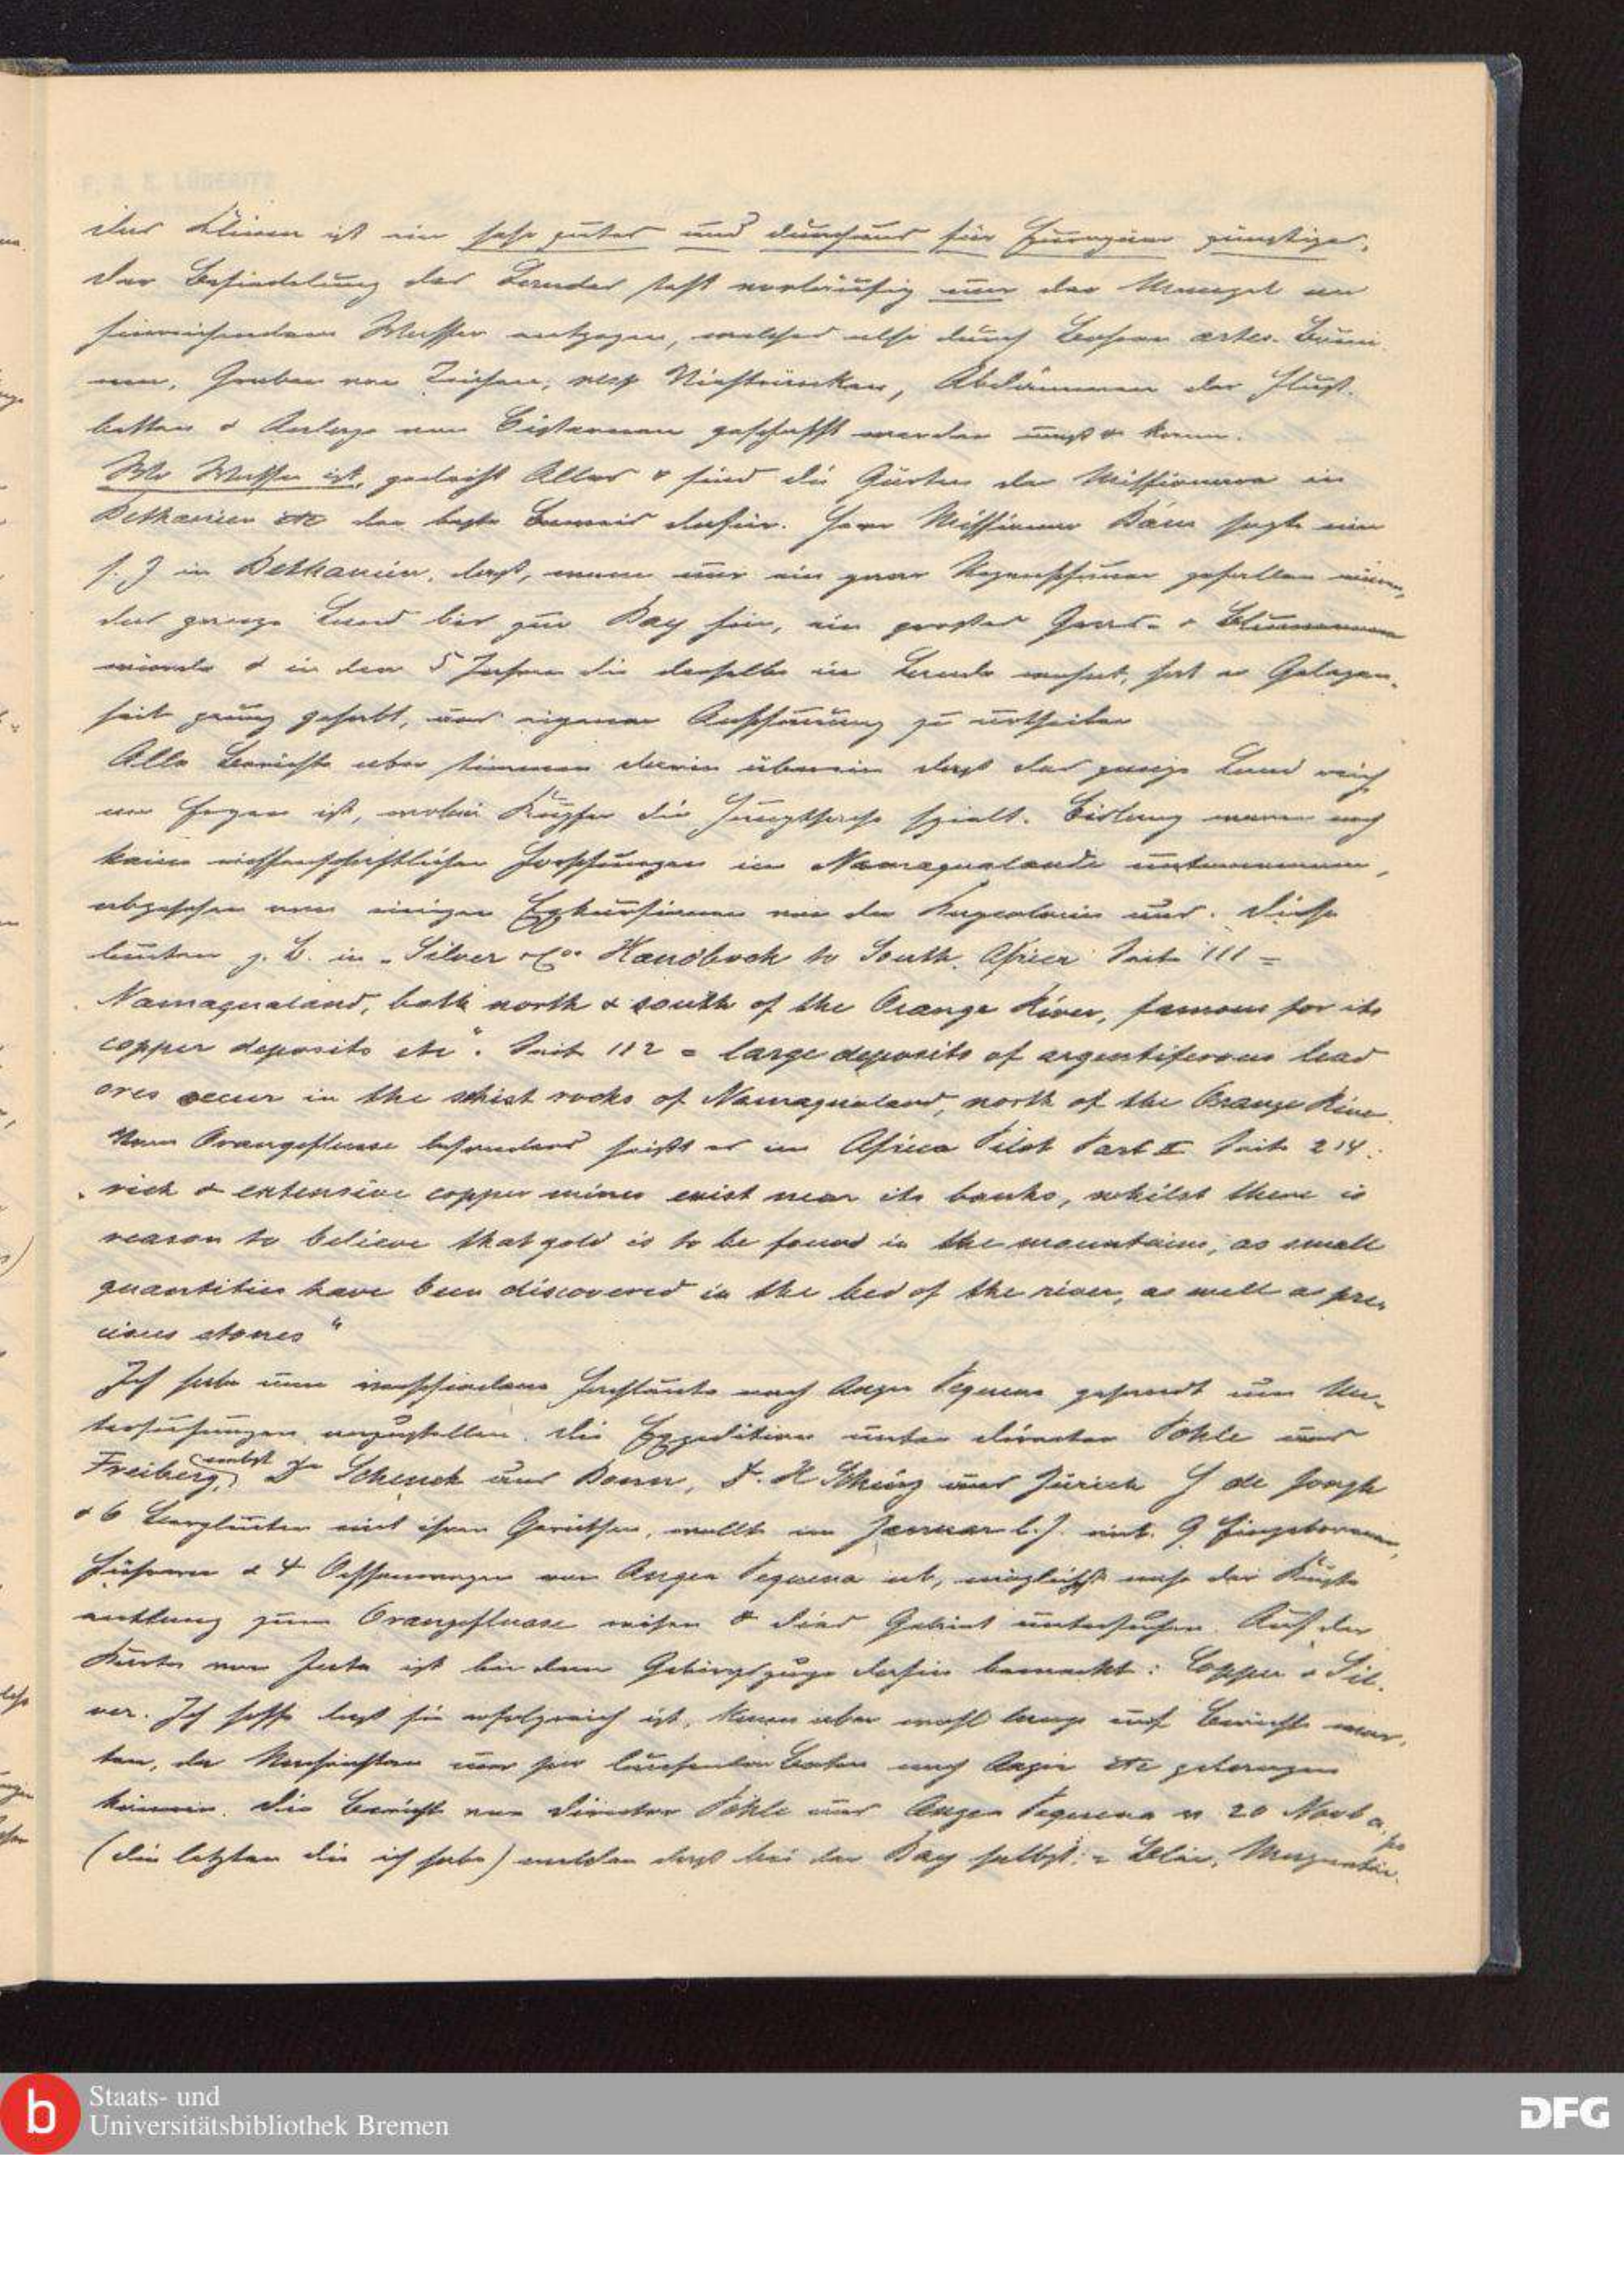 F. A. E. LÜDERITZ
das Klima ist ein sehr gutes und durchaus für Europäer günstiges,
der Besiedelung des Landes steht vorläufig nur der Mangel an
hinreichendem Wasser entgegen, welches also durch Bohren artes. Brun
nen, Graben von Teichen, resp Viehtränken, Abdämmen der Fluß-
betten & Anlage von Cisternen geschafft werden muß & kann.
Wo Wasser ist, gedeiht Alles & sind die Gärten der Missionare in
Bethanien etc der beste Beweis dafür. Herr Missionar Bäm sagte mir
s. Z in Bethanien, daß, wenn nur ein paar Regenschauer gefallen wären,
das ganze Land bis zur Bay hin, ein großes Gras- &
würde & in den 5 Jahren die derselbe im Lande wohnt, hat er Gelegen-
heit genug gehabt, aus eigener Anschauung zu urtheilen
Alle Berichte aber stimmen darin überein daß das ganze Land reich
an Erzen ist, wobei Kupfer die Hauptsache spielt. Bislang waren noch
keine wissenschaftlichen Forschungen im Namaqualande unternommen,
abgesehen von einigen Exkursionen von der Kapcolonie aus. Diese
lauten z. B. in „Silver & Co Handbook to South Africa Seite 111 =
Namaqualand, both north & south of the Orange River, famous for its
copper deposits etc“. Seite 112 = large deposits of argentiferous lead
ores occur in the schist rocks of Namaqualand, north of the Orange River.
Vom Orangeflusse besonders heißt es im Africa Pilot Part II Seite 214:
„rich & extensive copper mines exist near its banks, whilst there is
reason to believe that gold is to be found in the mountains, as small
quantities have been discovered in the bed of the river, as well as pre-
cious stones“
Ich habe nun verschiedene Fachleute nach Angra Pequena gesandt um Un-
tersuchungen anzustellen. Die Expedition unter Director Pohle aus
Freiberg, nebst Dr Schenck aus Bonn, Dr. H Schinz aus Zürich J de Jongh
& 6 Bergleuten mit ihren Geräthen, wollte im Januar l. J. mit 9 Eingeborenen,
Führern & 4 Ochsenwagen von Angra Pequena ab, möglichst nahe der Küste
entlang zum Orangeflusse reisen & dies Gebiet untersuchen. Auf der
Karte von Juta ist bei dem Gebirgszuge dahin bemerkt: Copper & Sil-
ver. Ich hoffe daß sie erfolgreich ist, kann aber wohl lange auf Berichte war-
ten, da Nachrichten nur per laufenden Boten nach Angra etc gelangen
können. Die Berichte von Director Pohle aus Angra Pequena v 20 Novb a. p
(die letzten die ich habe) melden daß bei der Bay selbst: = Blei,